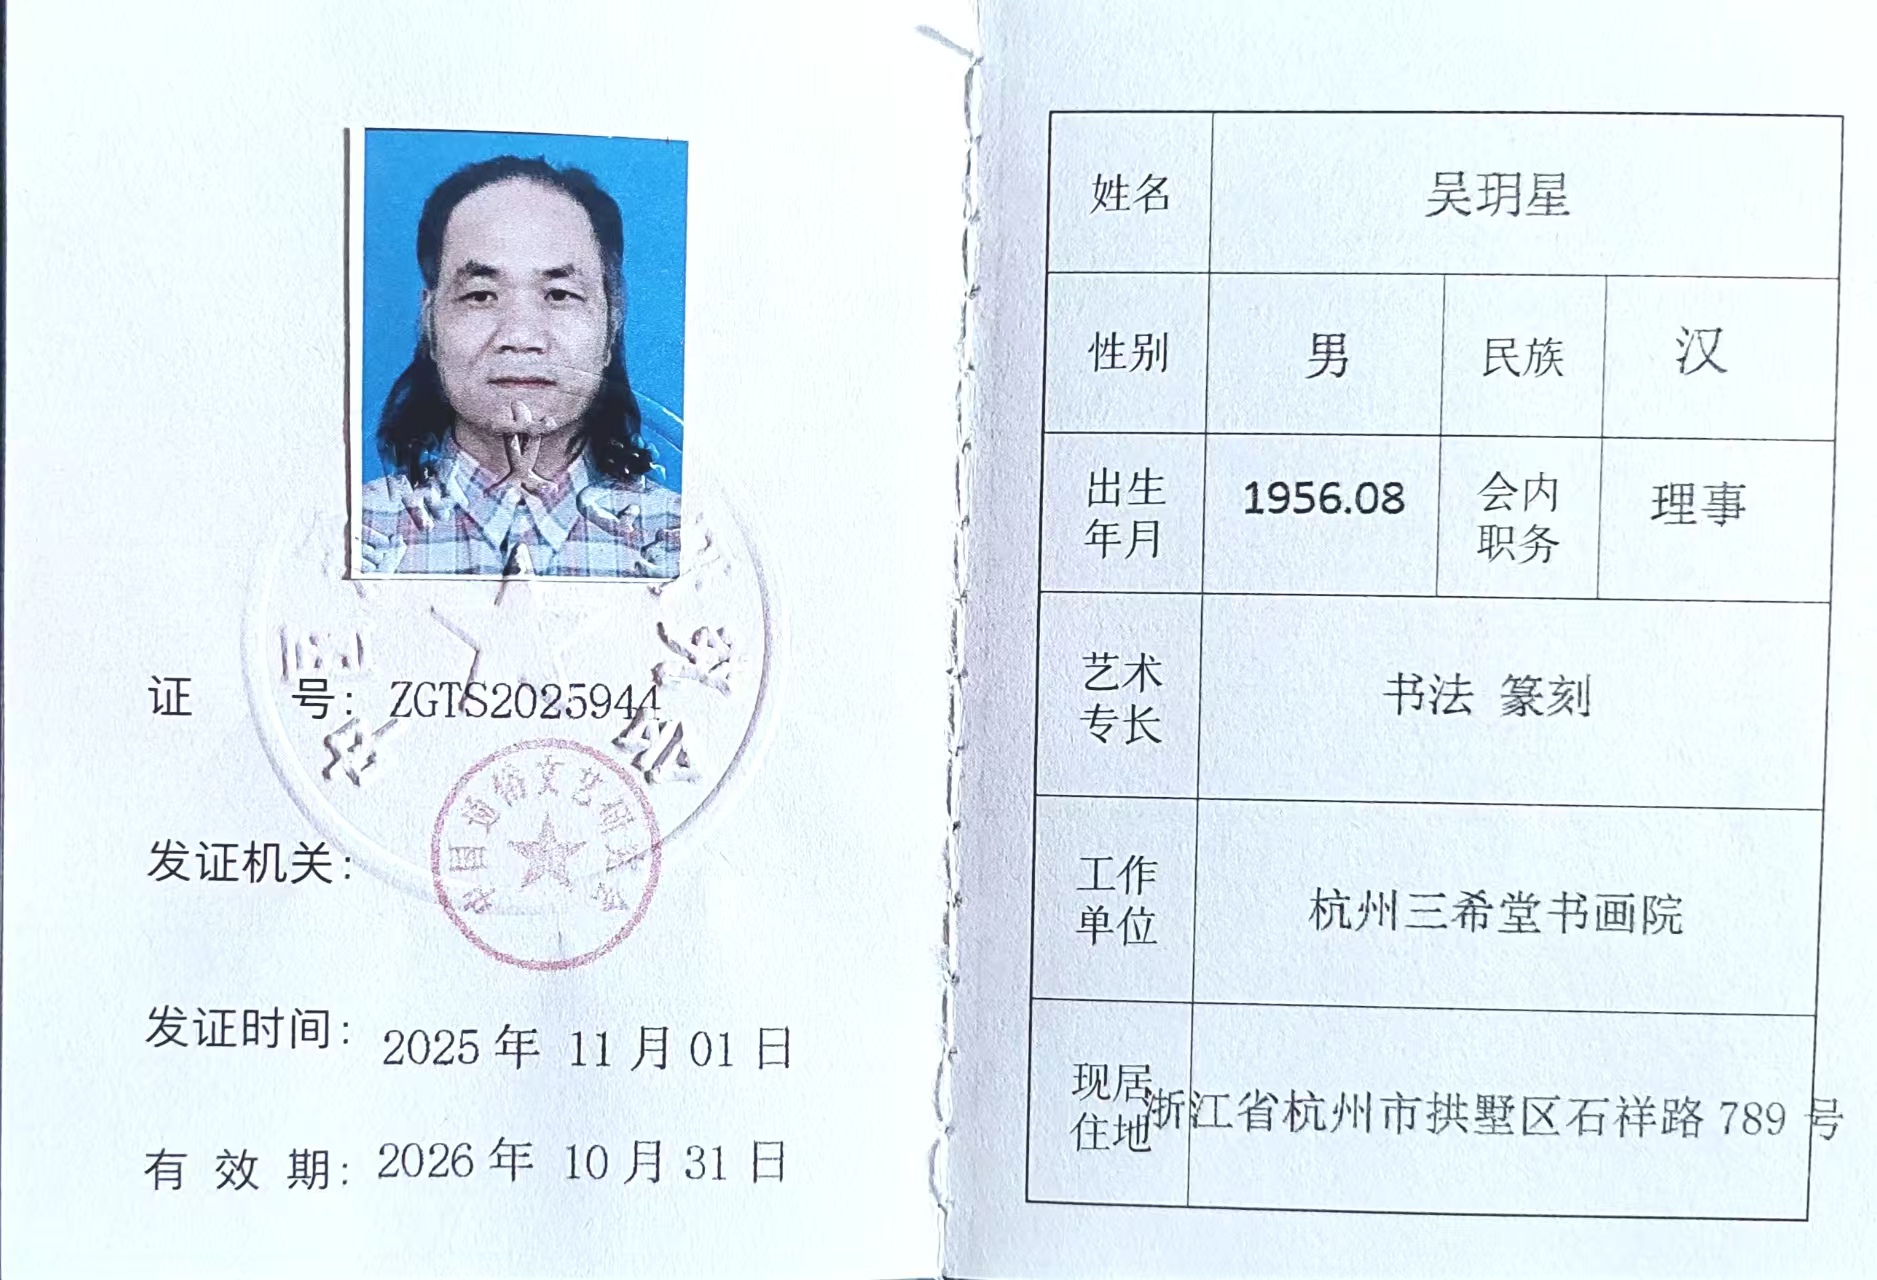 证 号：ZGTS2025944
中国通俗文艺研究会
发证机关：
发证时间：2025 年 11 月 01 日
有 效 期：2026 年 10 月 31 日
姓名 吴玥星
性别 男 民族 汉
出生
年月 1956.08 会内
职务 理事
艺术
专长 书法 篆刻
工作
单位 杭州三希堂书画院
现居
住地 浙江省杭州市拱墅区石祥路 789 号